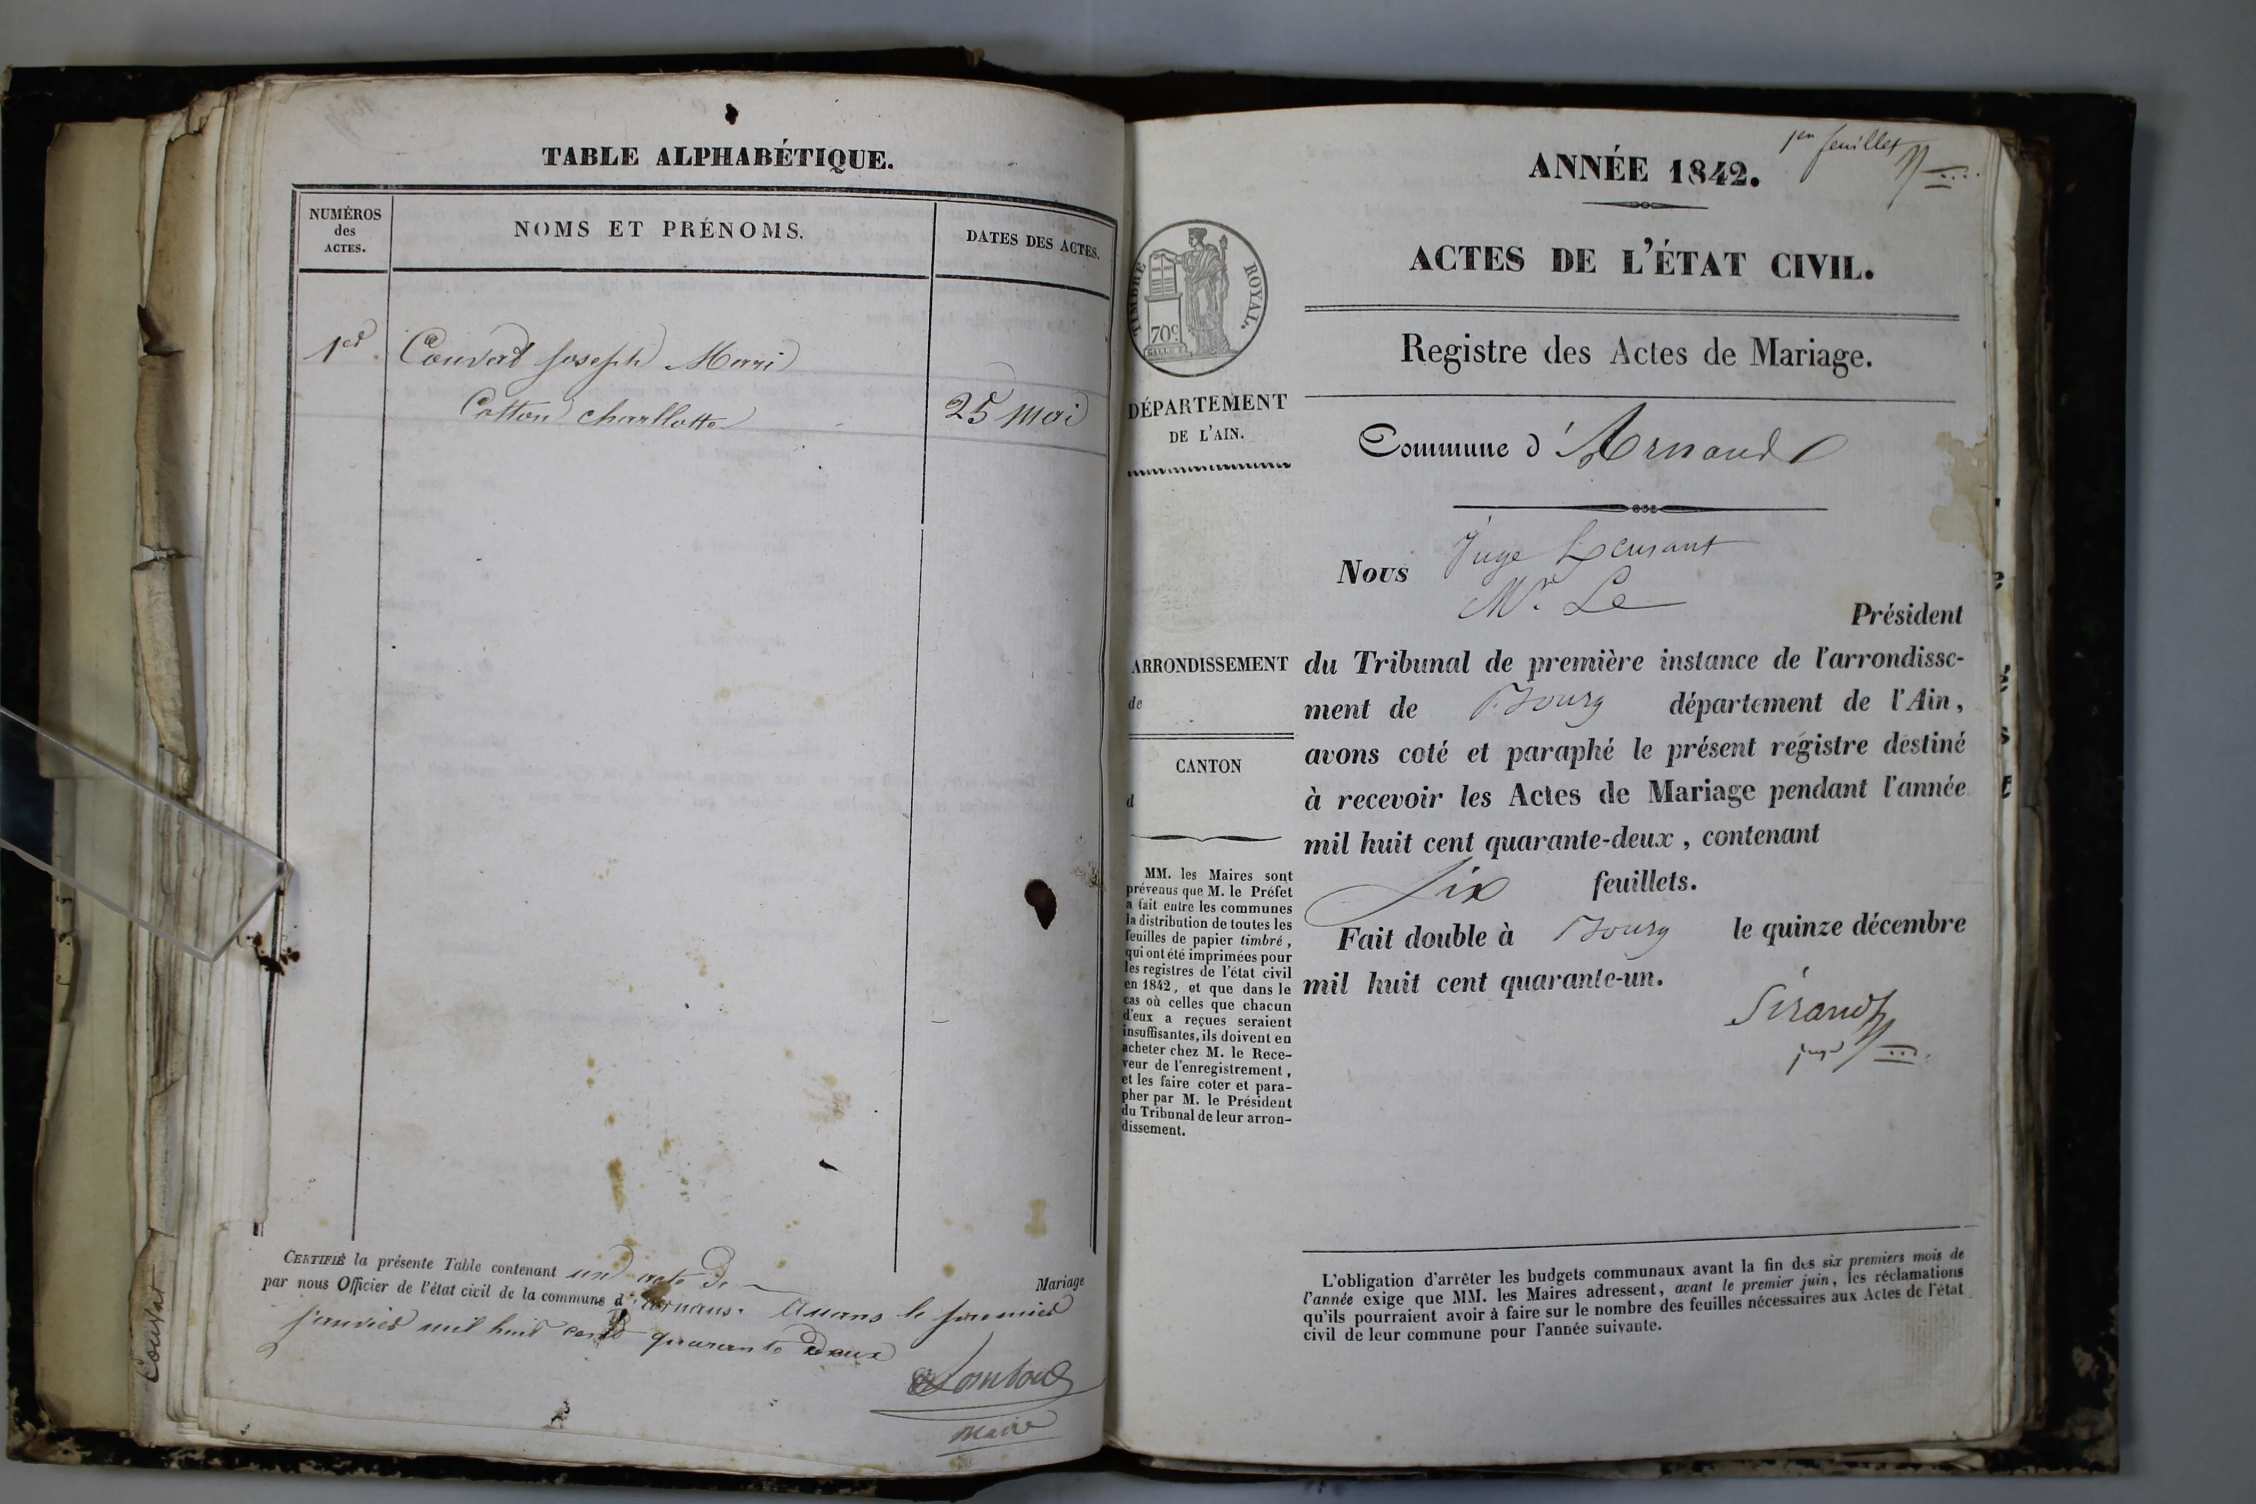 TABLE ALPHABÉTIQUE.
NUMÉROS
des
ACTES.
NOMS ET PRÉNOMS.
DATES DES ACTES.
1er Convert Joseph Mari
Cotton charllotte 25 mai
CERTIFIÉ la présente Table contenant un acte de Mariage
par nous Officier de l'état civil de la commune d' arnans. le premier
janvier mil huit cent quarante deux
maire
Convat
1er feuillet
ANNÉE 1842.
ACTES DE L'ÉTAT CIVIL.
TIMBRE ROYAL.
70c
Registre des Actes de Mariage.
DÉPARTEMENT
DE L'AIN.
Commune d' Arnand
Juge
Nous Mr. Le
Président
ARRONDISSEMENT
de
CANTON
d
du Tribunal de première instance de l'arrondisse-
ment de Bourg département de l'Ain,
avons coté et paraphé le présent régistre destiné
à recevoir les Actes de Mariage pendant l'année
mil huit cent quarante-deux, contenant
Six feuillets.
Fait double à Bourg le quinze décembre
mil huit cent quarante-un.
Sirand
juge
MM. les Maires sont
prévenus que M. le Préfet
a fait entre les communes
la distribution de toutes les
feuilles de papier timbré,
qui ont été imprimées pour
les registres de l'état civil
en 1842, et que dans le
cas où celles que chacun
d'eux a reçues seraient
insuffisantes, ils doivent en
acheter chez M. le Rece-
veur de l'enregistrement,
et les faire coter et para-
pher par M. le Président
du Tribunal de leur arron-
dissement.
L'obligation d'arrêter les budgets communaux avant la fin des six premiers mois de
l'année exige que MM. les Maires adressent, avant le premier juin, les réclamations
qu'ils pourraient avoir à faire sur le nombre des feuilles nécessaires aux Actes de l'état
civil de leur commune pour l'année suivante.